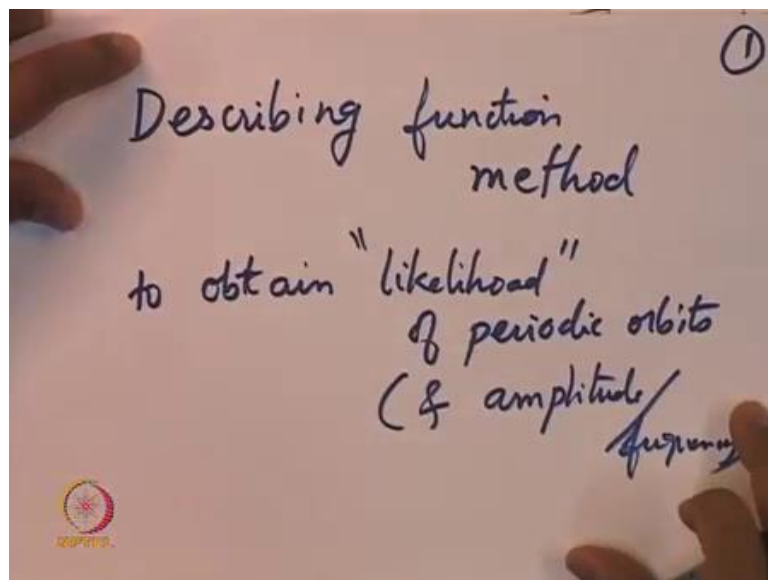 ①
Describing function
method
to obtain "likelihood"
of periodic orbits
(& amplitude/
frequency
NPTEL